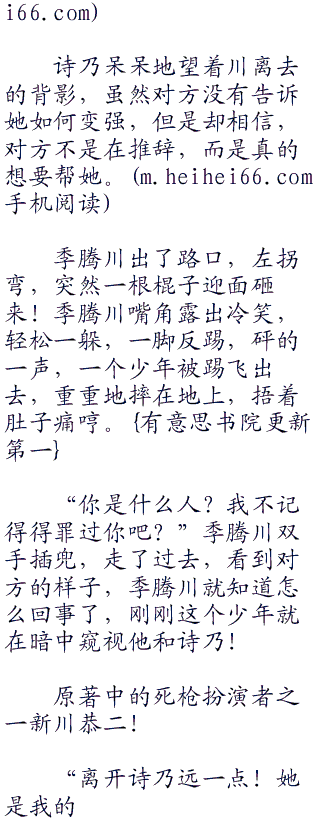 i66.com)
诗乃呆呆地望着川离去
的背影，虽然对方没有告诉
她如何变强，但是却相信，
对方不是在推辞，而是真的
想要帮她。(m.heihei66.com
手机阅读)
季腾川出了路口，左拐
弯，突然一根棍子迎面砸
来！季腾川嘴角露出冷笑，
轻松一躲，一脚反踢，砰的
一声，一个少年被踢飞出
去，重重地摔在地上，捂着
肚子痛哼。{有意思书院更新
第一}
“你是什么人？我不记
得得罪过你吧？”季腾川双
手插兜，走了过去，看到对
方的样子，季腾川就知道怎
么回事了，刚刚这个少年就
在暗中窥视他和诗乃！
原著中的死枪扮演者之
一新川恭二！
“离开诗乃远一点！她
是我的